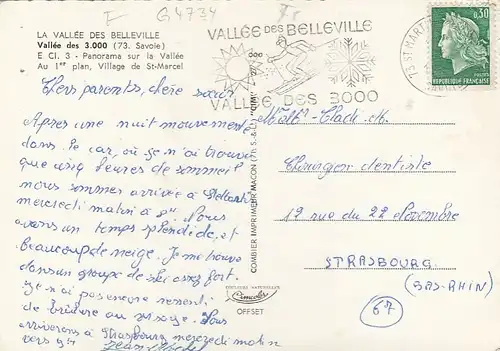 F G4734
LA VALLÉE DES BELLEVILLE
Vallée des 3.000 (73. Savoie)
E Cl. 3 - Panorama sur la Vallée
Au 1er plan, Village de St-Marcel
Chers parents, chère sœur
Après une nuit mouvementée
dans le car, où je n'ai trouvé
que cinq heures de sommeil
nous sommes arrivés à
mercredi matin à 8H. Nous
avons un temps splendide, et
beaucoup de neige. Je me trouve
dans un groupe de ski assez fort.
Je n'ai pas encore ressenti
de brûlure au visage. Nous
arriverons à Strasbourg mercredi matin
vers 9H
COMBIER IMPRIMEUR MACON (71. S.-&-L.) "CIM"
COULEURS NATURELLES
Cimcolor
OFFSET
VALLÉE DES BELLEVILLE
VALLÉE DES 3000
73 ST MARTIN
0,30
REPUBLIQUE FRANÇAISE
POSTES
Chirurgien dentiste
12 rue du 22 Novembre
STRASBOURG
(BAS-RHIN)
67